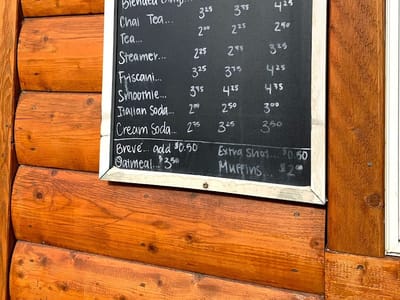 Blended Chai...
Chai Tea... 3²⁵ 3⁷⁵ 4²⁵
Tea... 2⁰⁰ 2²⁵ 2⁵⁰
Steamer... 2²⁵ 2⁷⁵ 3²⁵
Friscani... 3²⁵ 3⁷⁵ 4²⁵
Smoothie... 3⁷⁵ 4²⁵ 4⁷⁵
Italian Soda... 2⁰⁰ 2⁵⁰ 3⁰⁰
Cream Soda... 2⁷⁵ 3²⁵ 3⁵⁰
Breve... add $0.50 Extra Shot... $0.50
Oatmeal... $3⁵⁰ Muffins... $2⁰⁰